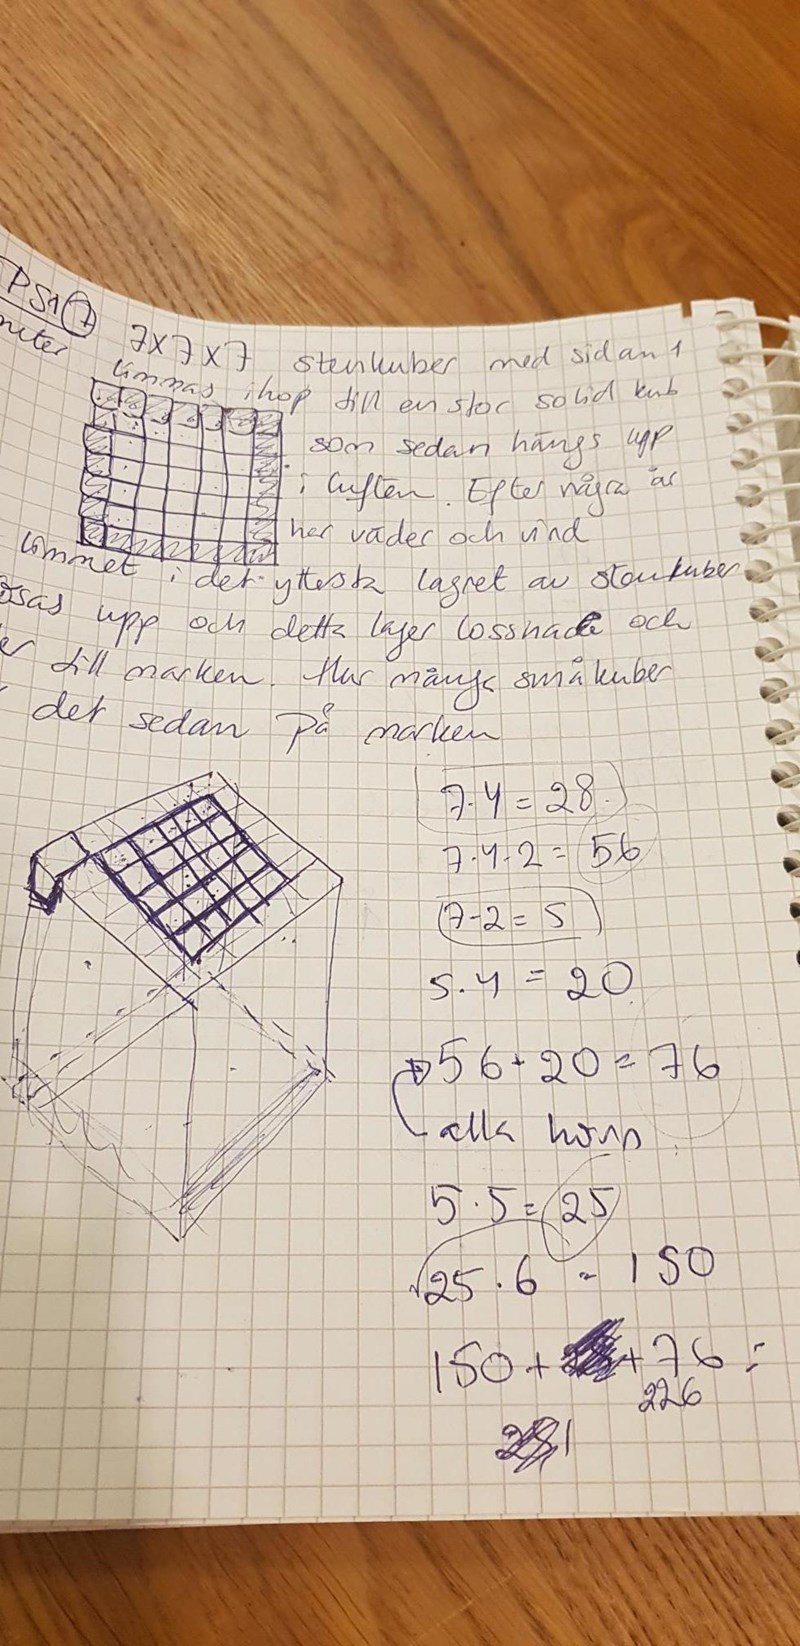 PS1 7
meter 7x7x7 stenkuber med sidan 1
limmas ihop till en stor solid kub
som sedan hängs upp
i luften. Efter några år
har väder och vind
limmet i det yttersta lagret av stenkuber
ösas upp och detta lager lossnade och
er till marken. Hur många småkuber
r det sedan på marken
7·4=28
7·4·2=56
7-2=5
5·4=20
56+20=76
alla hörn
5·5=25
25·6=150
150+ +76=
226